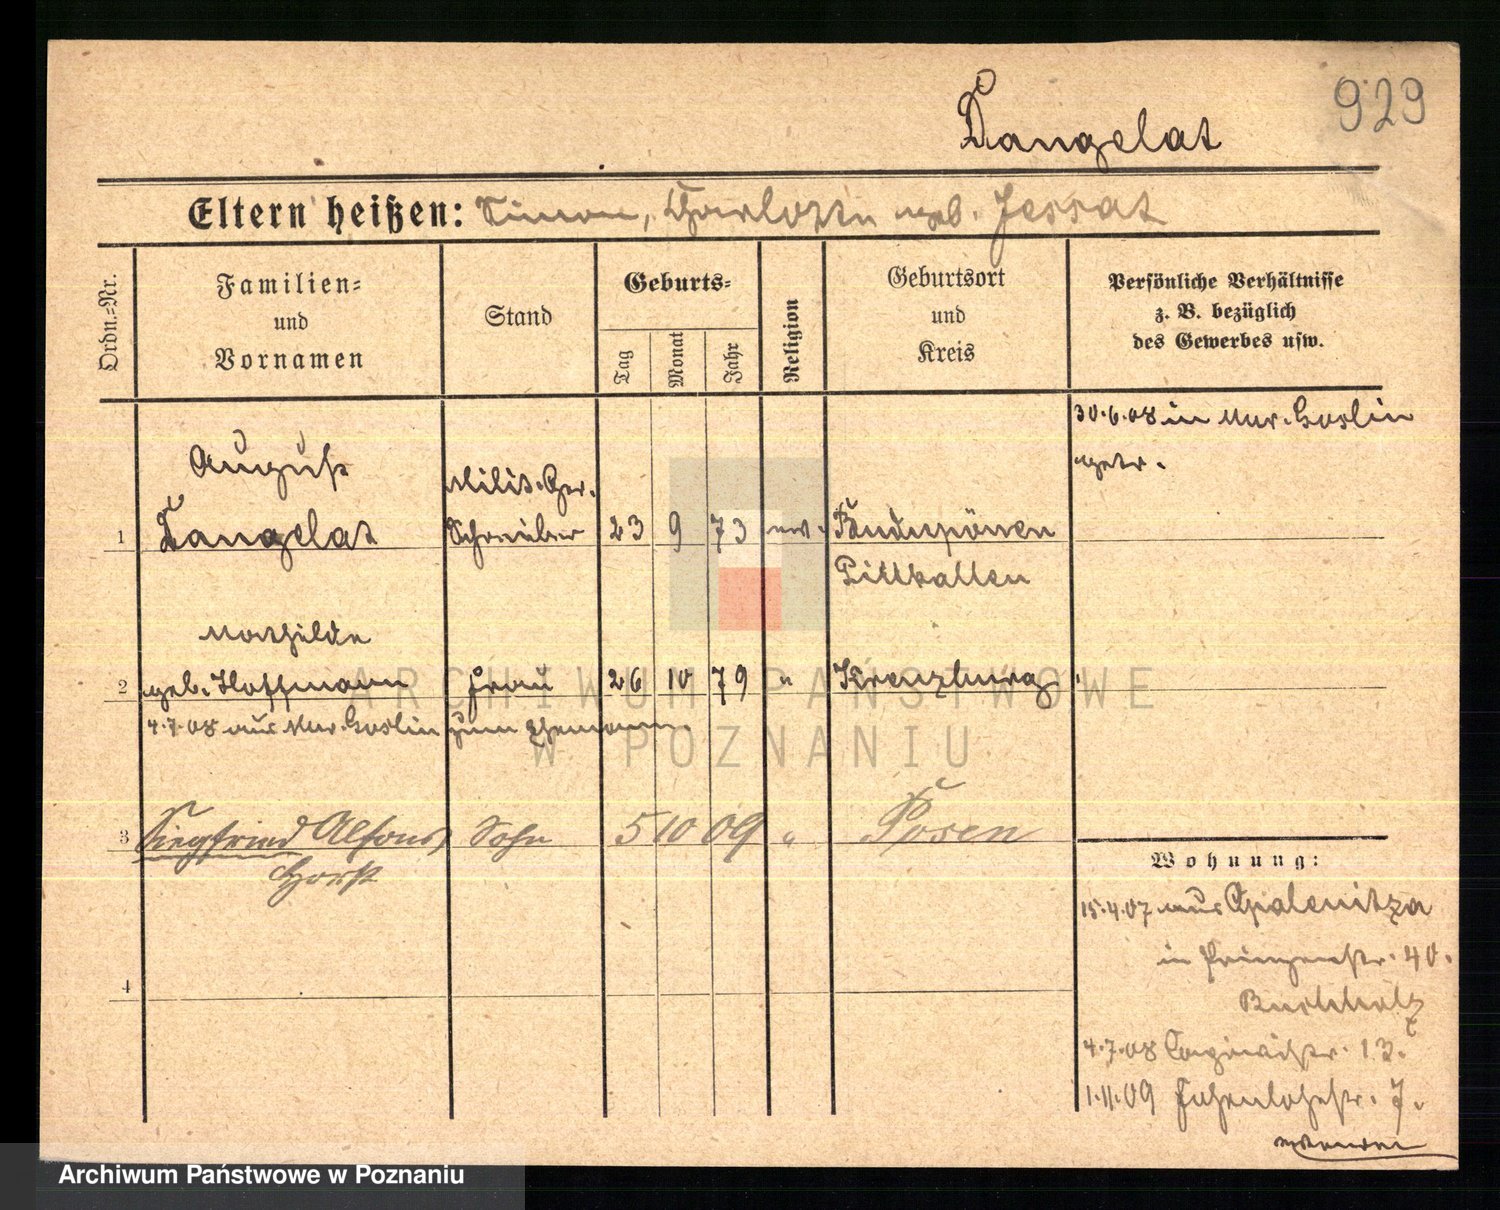 929
Langelat
Eltern heißen: Simon, Charlotte geb. Jessat
Ordn.-Nr.
Familien- und Vornamen
Stand
Geburts-
Tag
Monat
Jahr
Religion
Geburtsort und Kreis
Persönliche Verhältnisse z. B. bezüglich des Gewerbes usw.
30.6.08 in Mur. Goslin
getr.
August
Milit. Ger.
1 Langelat Schreiber 23 9 73 ev.
Pillkallen
Mathilde
2 geb. Hoffmann Frau 26 10 79 " Kreuzburg
4.7.08 aus Mur. Goslin zum Ehemann.
3 Siegfried Alfons Sohn 5 10 09 " Posen
Horst
4
Wohnung:
15.4.07 aus Opalenitza
in Prinzenstr. 40.
Buchholz
4.7.08 13.
1.11.09 Hohenlohestr. 7.
ARCHIWUM PAŃSTWOWE
W POZNANIU
Archiwum Państwowe w Poznaniu